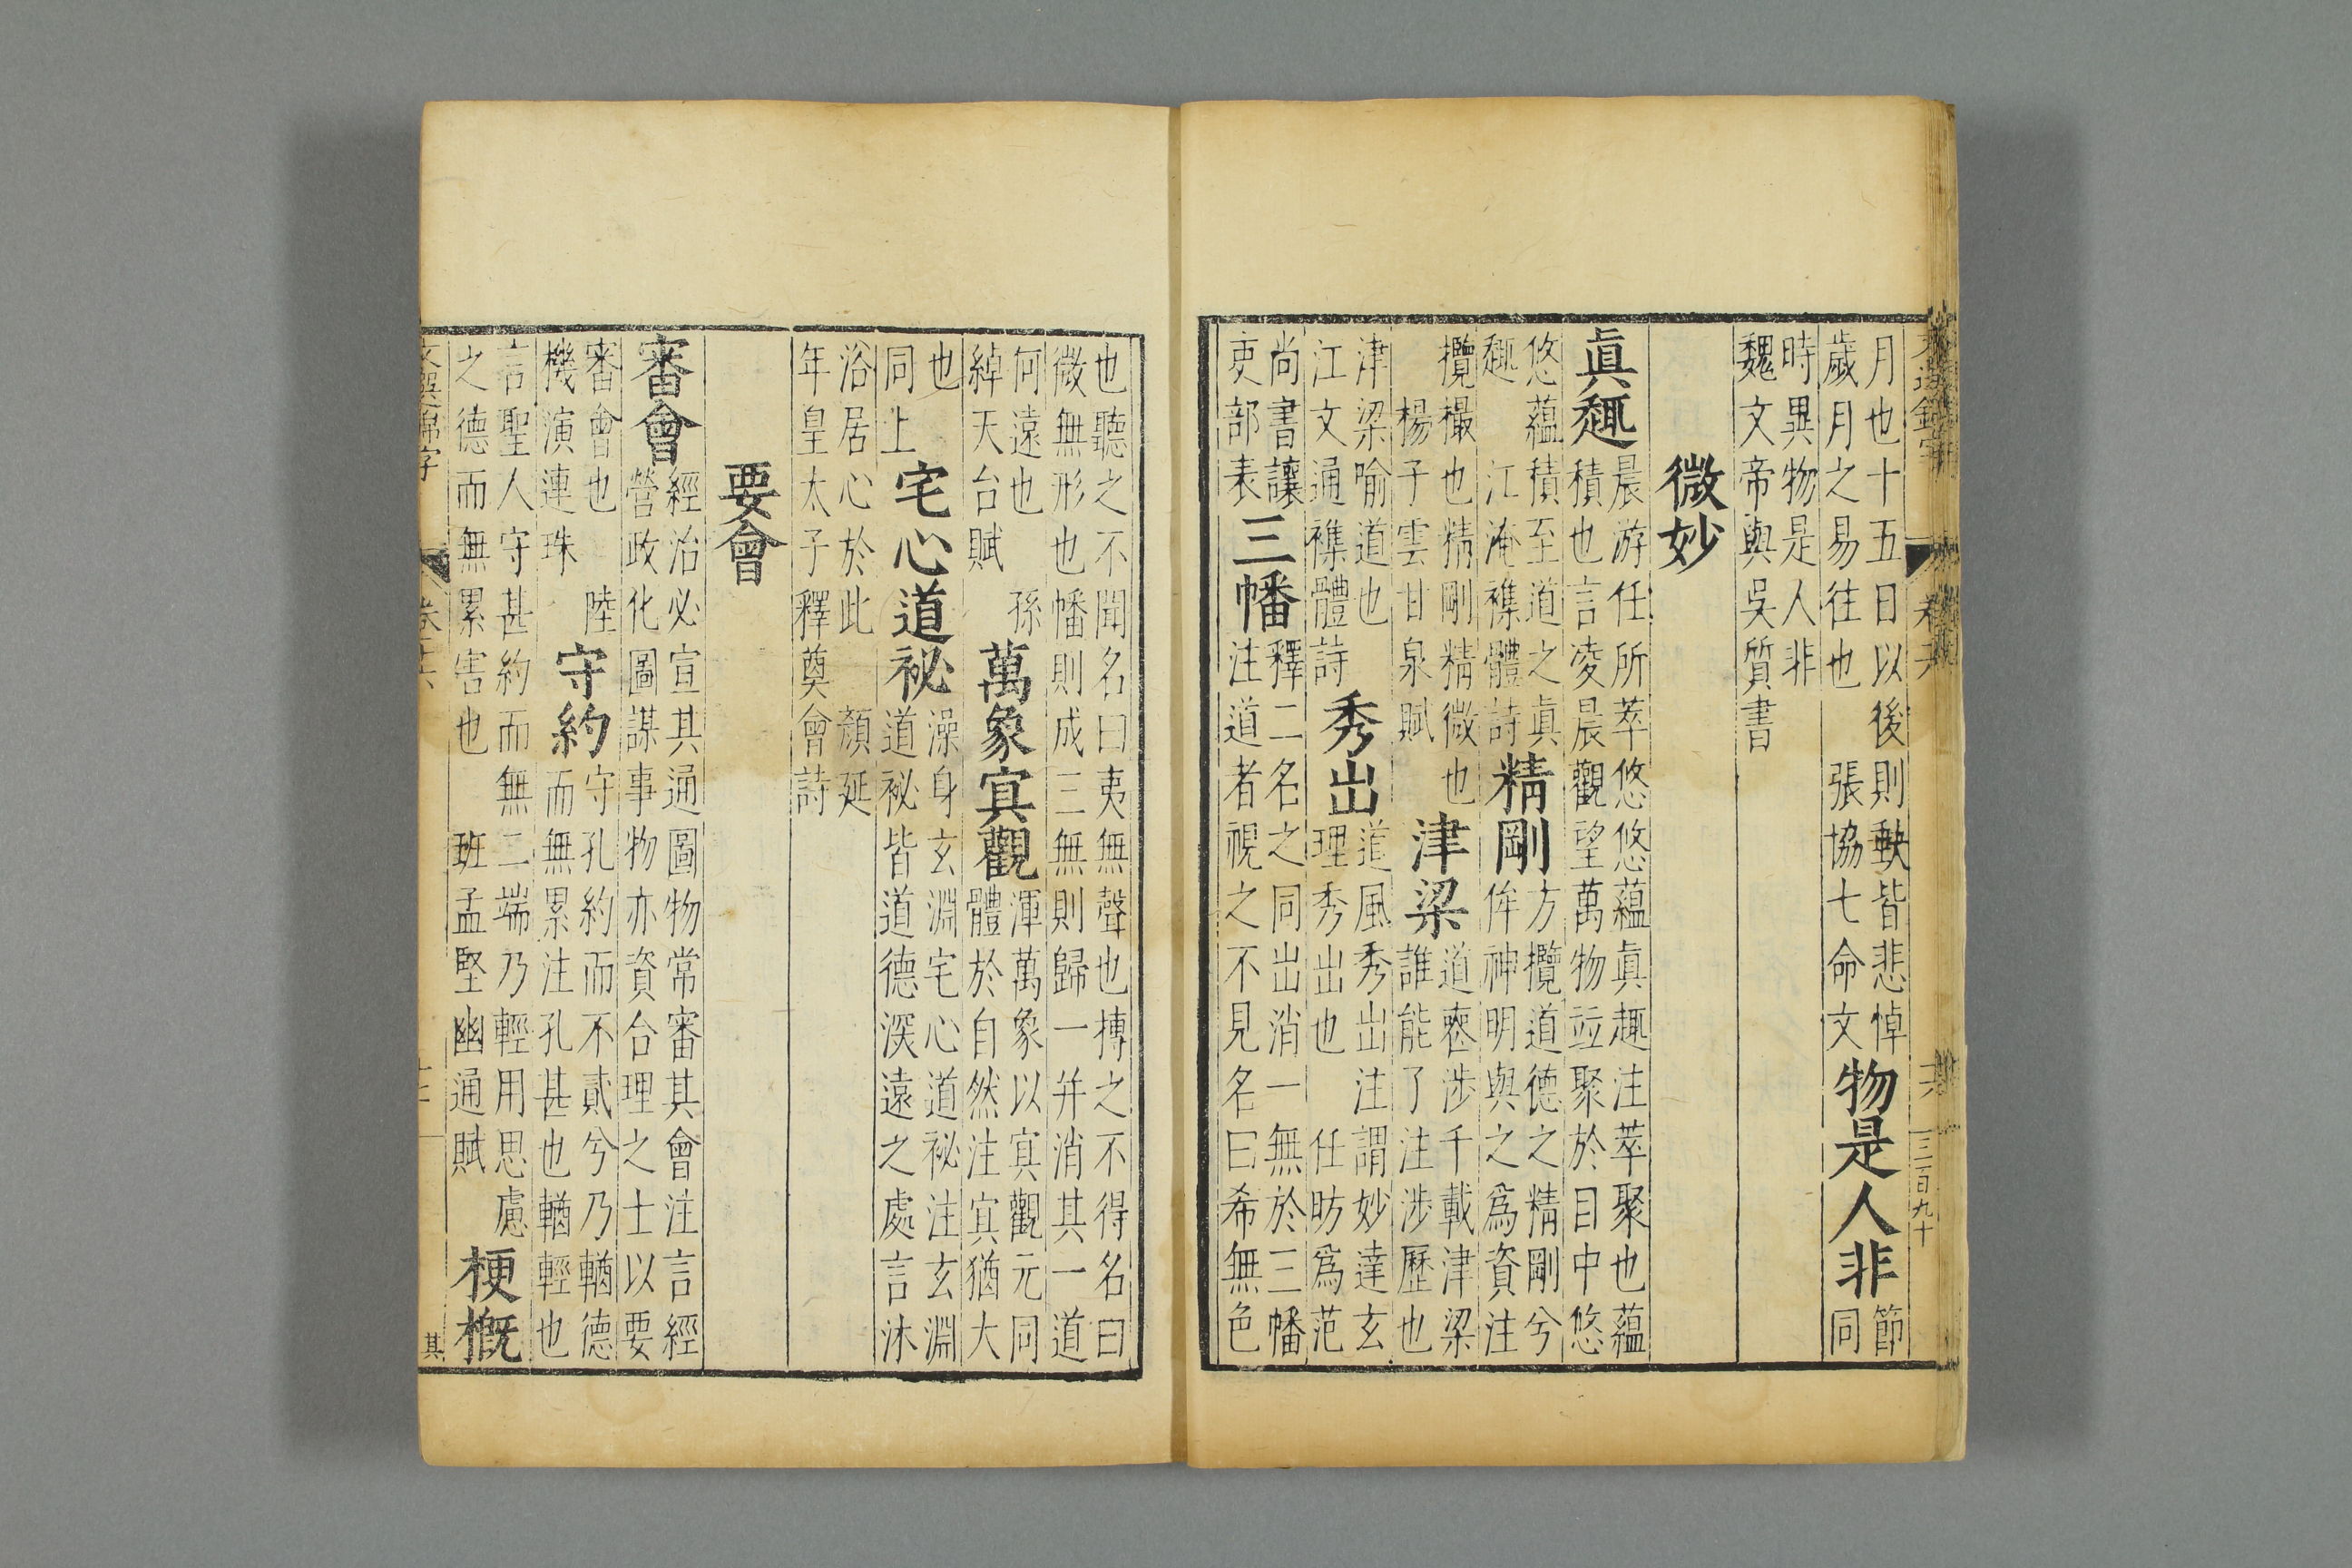 月也十五日以後則缺皆悲悼
歲月之易往也 張協七命文
物是人非
節
同
時異物是人非
魏文帝與吳質書
微妙
眞趣
晨游任所萃悠悠蘊眞趣注萃聚也蘊
積也言凌晨觀望萬物竝聚於目中悠
悠蘊積至道之眞
趣 江淹襍體詩
精剛
方攬道德之精剛兮
侔神明與之爲資注
攬撮也精剛精微也
楊子雲甘泉賦
津梁
道喪涉千載津梁
誰能了注涉歷也
津梁喻道也
江文通襍體詩
秀出
道風秀出注謂妙達玄
理秀出也 任昉爲范
尚書讓
吏部表
三幡
釋二名之同出消一無於三幡
注道者視之不見名曰希無色
也聽之不聞名曰夷無聲也摶之不得名曰
微無形也幡則成三無則歸一并消其一道
何遠也 孫
綽天台賦
萬象冥觀
渾萬象以冥觀元同
體於自然注冥猶大
也
同上
宅心道祕
澡身玄淵宅心道祕注玄淵
道祕皆道德深遠之處言沐
浴居心於此 顏延
年皇太子釋奠會詩
要會
審會
經治必宣其通圖物常審其會注言經
營政化圖謀事物亦資合理之士以要
審會也 陸
機演連珠
守約
守孔約而不貳兮乃輶德
而無累注孔甚也輶輕也
言聖人守甚約而無二端乃輕用思慮
之德而無累害也 班孟堅幽通賦
梗槪
卷十六
三百九十
其